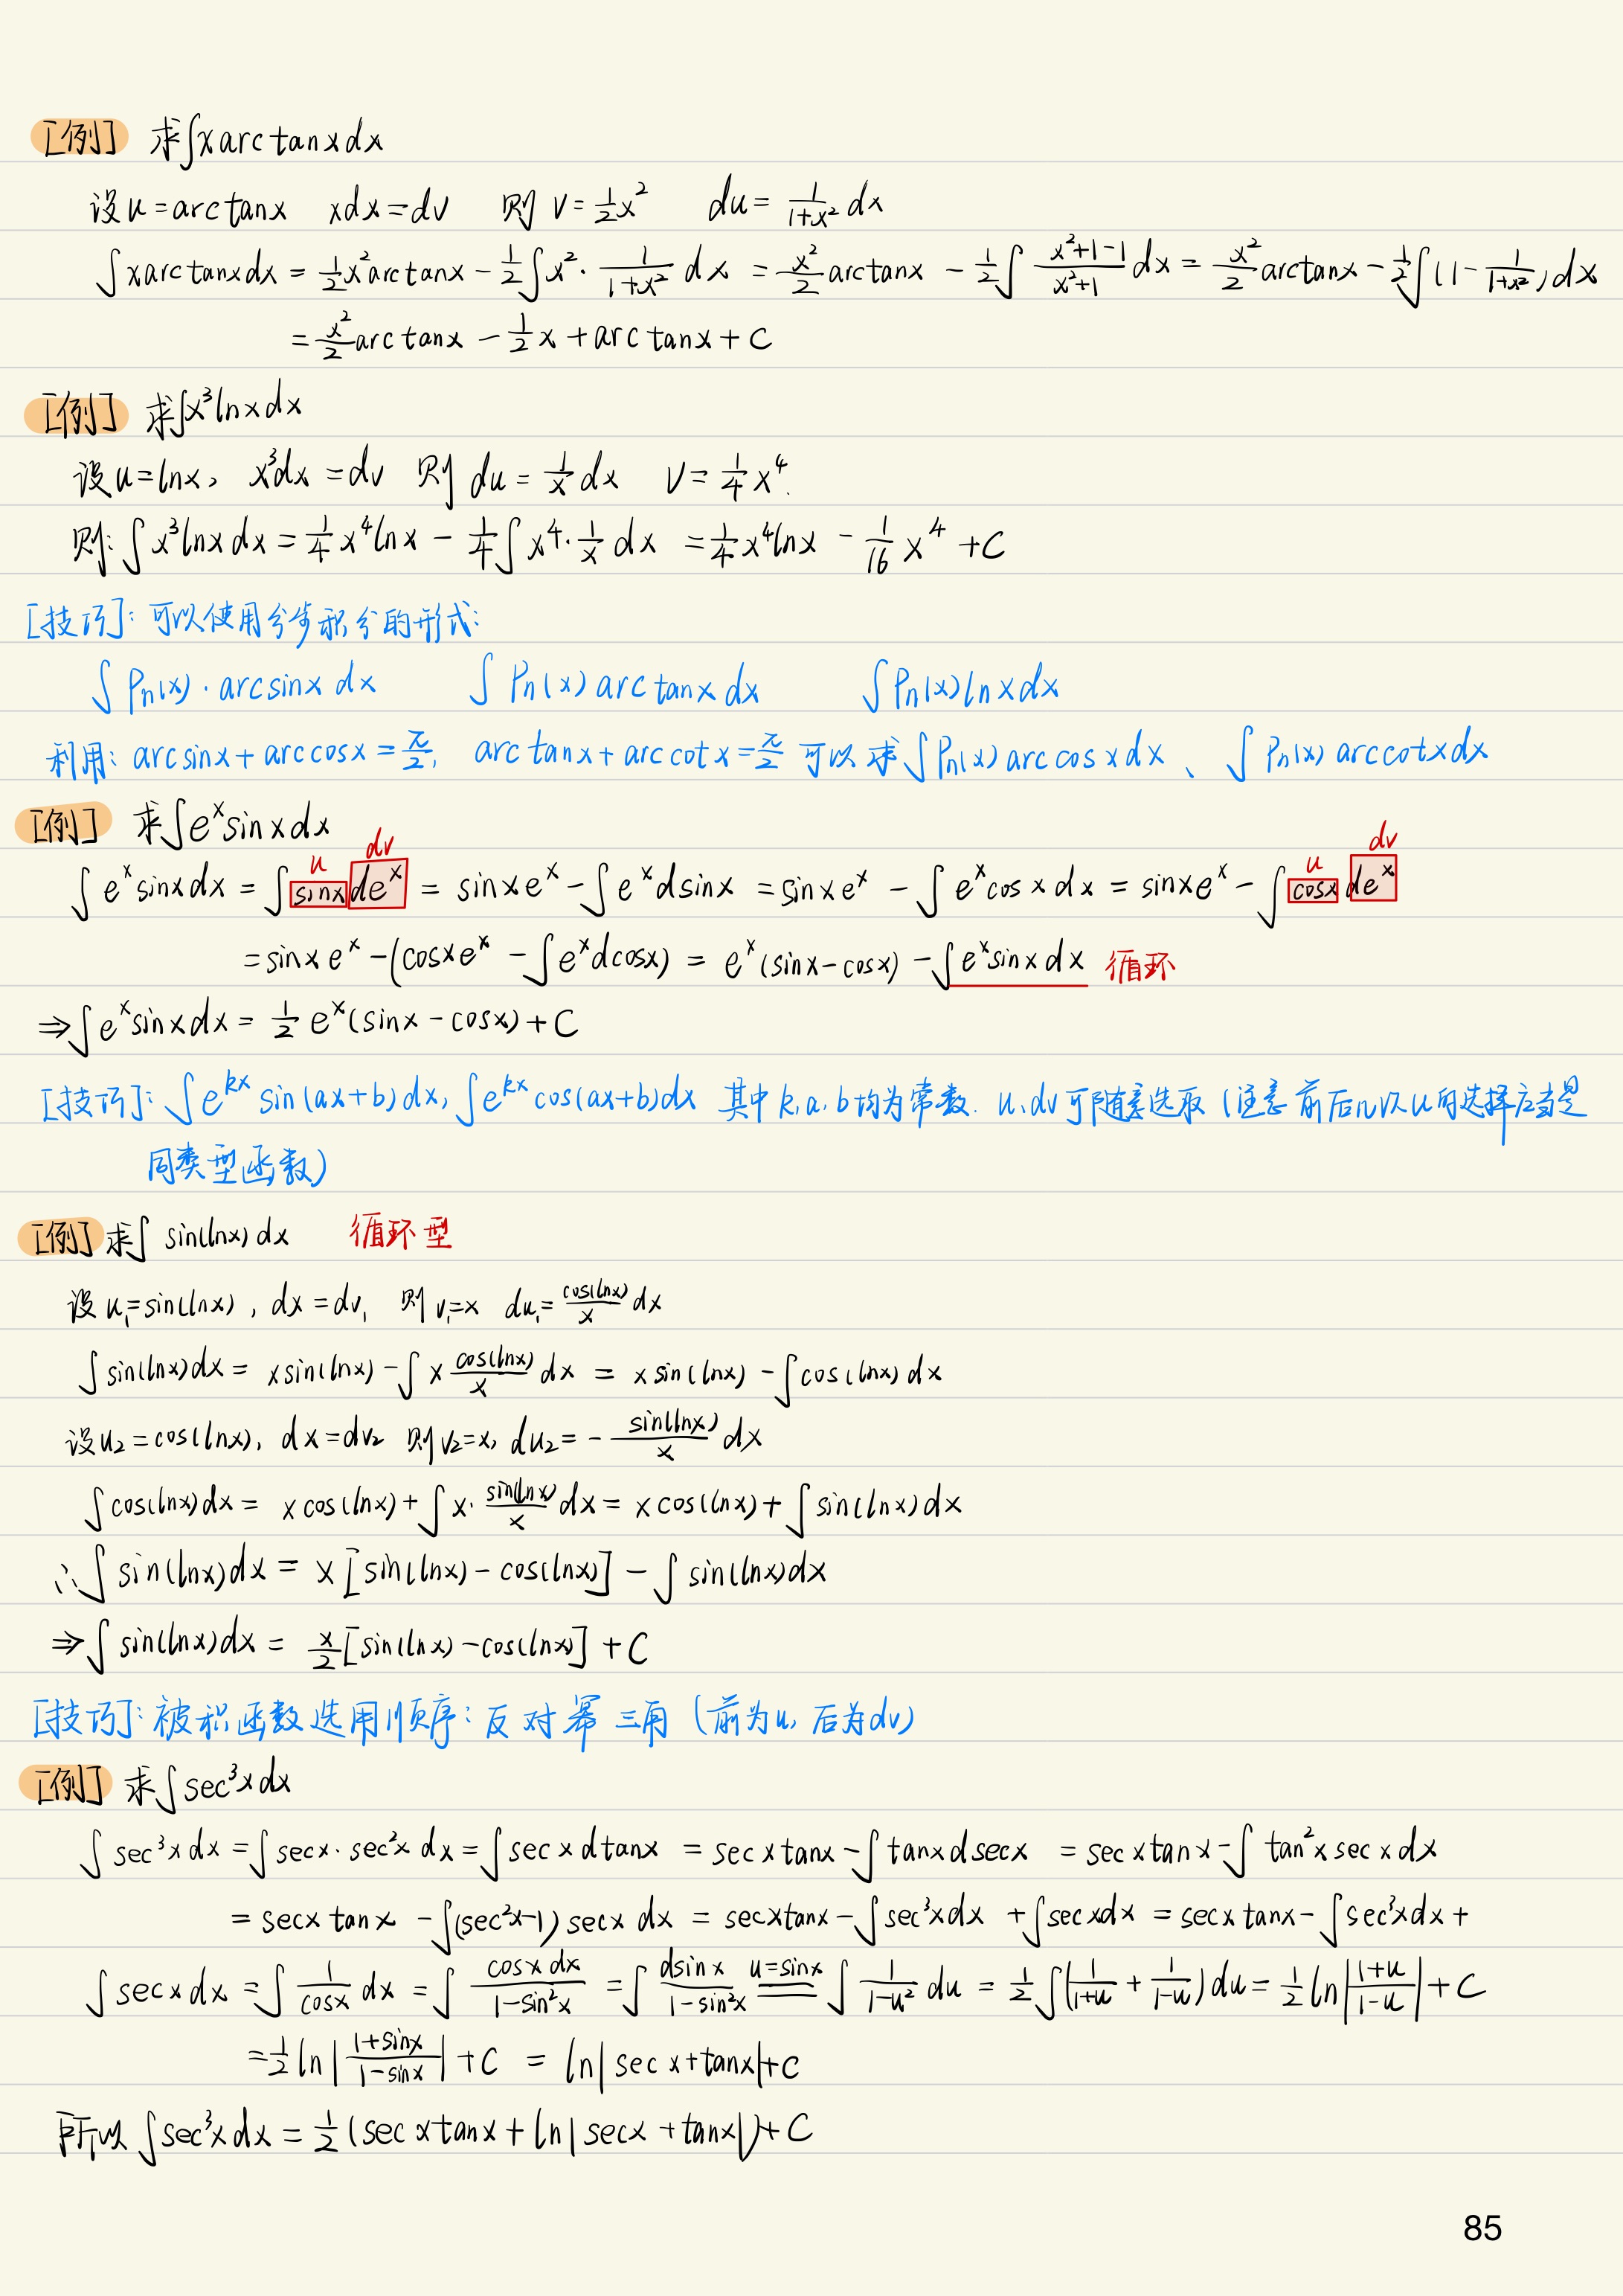 [例] 求∫x arctanx dx
设u=arctanx xdx=dv 则 v=½x² du=1/(1+x²) dx
∫x arctanx dx = ½x² arctanx - ½∫x²·1/(1+x²) dx = x²/2 arctanx - ½∫(x²+1-1)/(x²+1) dx = x²/2 arctanx - ½∫(1-1/(1+x²))dx
= x²/2 arctanx - ½x + arctanx + C
[例] 求∫x³lnx dx
设u=lnx, x³dx=dv 则 du=1/x dx v=¼x⁴.
则:∫x³lnx dx = ¼x⁴lnx - ¼∫x⁴·1/x dx = ¼x⁴lnx - 1/16 x⁴ + C
[技巧]: 可以使用分步积分的形式:
∫Pn(x)·arcsinx dx ∫Pn(x) arctanx dx ∫Pn(x) lnx dx
利用: arcsinx + arccosx = π/2, arctanx + arccotx = π/2 可以求∫Pn(x) arccosx dx、∫Pn(x) arccotx dx
[例] 求∫eˣsinx dx
u dv u dv
∫eˣsinx dx = ∫sinx deˣ = sinx eˣ - ∫eˣdsinx = sinx eˣ - ∫eˣcosx dx = sinx eˣ - ∫cosx deˣ
= sinx eˣ - (cosx eˣ - ∫eˣdcosx) = eˣ(sinx-cosx) - ∫eˣsinx dx 循环
⇒∫eˣsinx dx = ½eˣ(sinx-cosx)+C
[技巧]: ∫e^{kx} sin(ax+b)dx, ∫e^{kx} cos(ax+b)dx 其中k,a,b均为常数. u,dv可随意选取(注意前后几次u的选择应当是
同类型函数)
[例] 求∫sin(lnx)dx 循环型
设u₁=sin(lnx), dx=dv₁ 则v₁=x du₁=cos(lnx)/x dx
∫sin(lnx)dx = x sin(lnx) - ∫x cos(lnx)/x dx = x sin(lnx) - ∫cos(lnx)dx
设u₂=cos(lnx), dx=dv₂ 则v₂=x, du₂=-sin(lnx)/x dx
∫cos(lnx)dx = x cos(lnx) + ∫x·sin(lnx)/x dx = x cos(lnx) + ∫sin(lnx)dx
∴∫sin(lnx)dx = x[sin(lnx)-cos(lnx)] - ∫sin(lnx)dx
⇒∫sin(lnx)dx = x/2[sin(lnx)-cos(lnx)]+C
[技巧]: 被积函数选用顺序: 反对幂三角(前为u, 后为dv)
[例] 求∫sec³x dx
∫sec³x dx = ∫secx·sec²x dx = ∫secx dtanx = secx tanx - ∫tanx dsecx = secx tanx - ∫tan²x secx dx
= secx tanx - ∫(sec²x-1)secx dx = secx tanx - ∫sec³x dx + ∫secx dx = secx tanx - ∫sec³x dx +
∫secx dx = ∫1/cosx dx = ∫cosx dx/(1-sin²x) = ∫dsinx/(1-sin²x) u=sinx ∫1/(1-u²) du = ½∫(1/(1+u)+1/(1-u))du = ½ln|(1+u)/(1-u)|+C
= ½ln|(1+sinx)/(1-sinx)|+C = ln|secx+tanx|+C
所以∫sec³x dx = ½(secx tanx + ln|secx+tanx|)+C
85